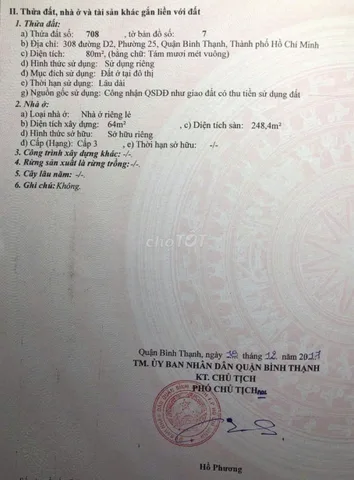 II. Thửa đất, nhà ở và tài sản khác gắn liền với đất
1. Thửa đất:
a) Thửa đất số: 708 , tờ bản đồ số: 7
b) Địa chỉ: 308 đường D2, Phường 25, Quận Bình Thạnh, Thành phố Hồ Chí Minh
c) Diện tích: 80m², (bằng chữ: Tám mươi mét vuông)
d) Hình thức sử dụng: Sử dụng riêng
đ) Mục đích sử dụng: Đất ở tại đô thị
e) Thời hạn sử dụng: Lâu dài
g) Nguồn gốc sử dụng: Công nhận QSDĐ như giao đất có thu tiền sử dụng đất
2. Nhà ở:
a) Loại nhà ở: Nhà ở riêng lẻ
b) Diện tích xây dựng: 64m² , c) Diện tích sàn: 248,4m²
d) Hình thức sở hữu: Sở hữu riêng
đ) Cấp (Hạng): Cấp 3 , e) Thời hạn sở hữu: -/-
3. Công trình xây dựng khác: -/-
4. Rừng sản xuất là rừng trồng: -/-
5. Cây lâu năm: -/-
6. Ghi chú: Không.
chợTỐT
Quận Bình Thạnh, ngày 18 tháng 12 năm 2017
TM. ỦY BAN NHÂN DÂN QUẬN BÌNH THẠNH
KT. CHỦ TỊCH
PHÓ CHỦ TỊCH
Hồ Phương